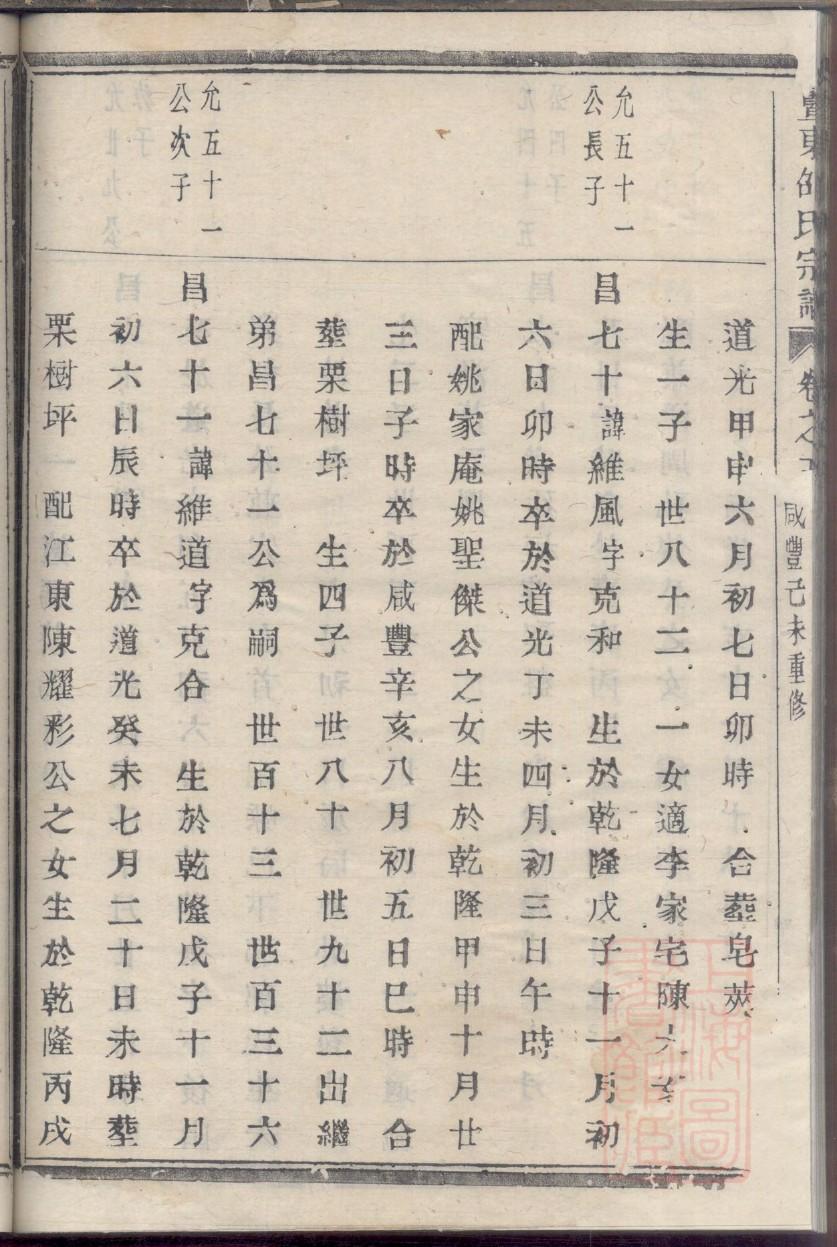 豐東邵氏宗譜 卷之
咸豐己未重修
道光甲申六月初七日卯時 合塟皂莢
生一子 世八十二 一女適李家宅陳
允五十一
公長子
昌七十諱維風字克和 生於乾隆戊子十一月初
六日卯時卒於道光丁未四月初三日午時
配姚家庵姚聖傑公之女生於乾隆甲申十月廿
三日子時卒於咸豐辛亥八月初五日巳時 合
塟栗樹坪 生四子 世八十 世九十二出繼
弟昌七十一公爲嗣 世百十三 世百三十六
允五十一
公次子
昌七十一諱維道字克合 生於乾隆戊子十一月
初六日辰時卒於道光癸未七月二十日未時塟
栗樹坪 配江東陳耀彩公之女生於乾隆丙戌